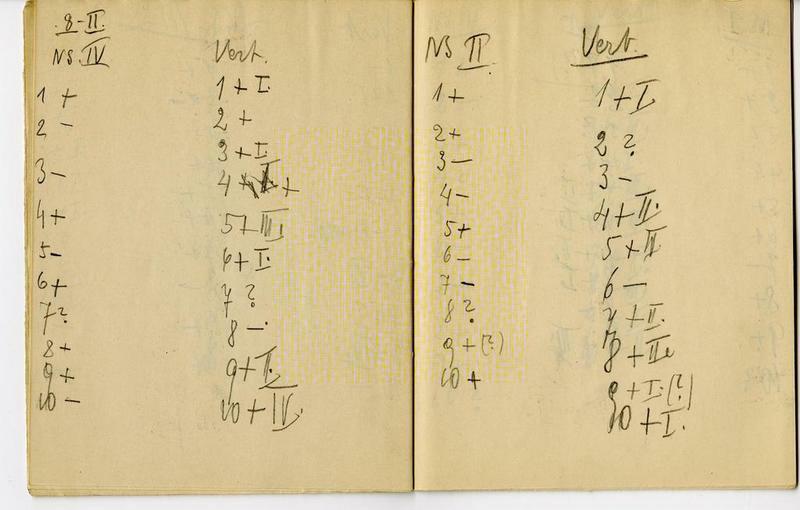 8-II.
NS. IV
1 +
2 -
3 -
4 +
5 -
6 +
7 ?
8 +
9 +
10 -
Vert.
1 + I.
2 +
3 + I.
4 + +
5 + III.
6 + I.
7 ?
8 -
9 + II.
10 + IV.
NS II.
1 +
2 +
3 -
4 -
5 +
6 -
7 -
8 ?
9 + (?)
10 +
Vert.
1 + I.
2 ?
3 -
4 + II.
5 + II
6 -
7 + II.
8 + II.
9 + I. (?)
10 + I.